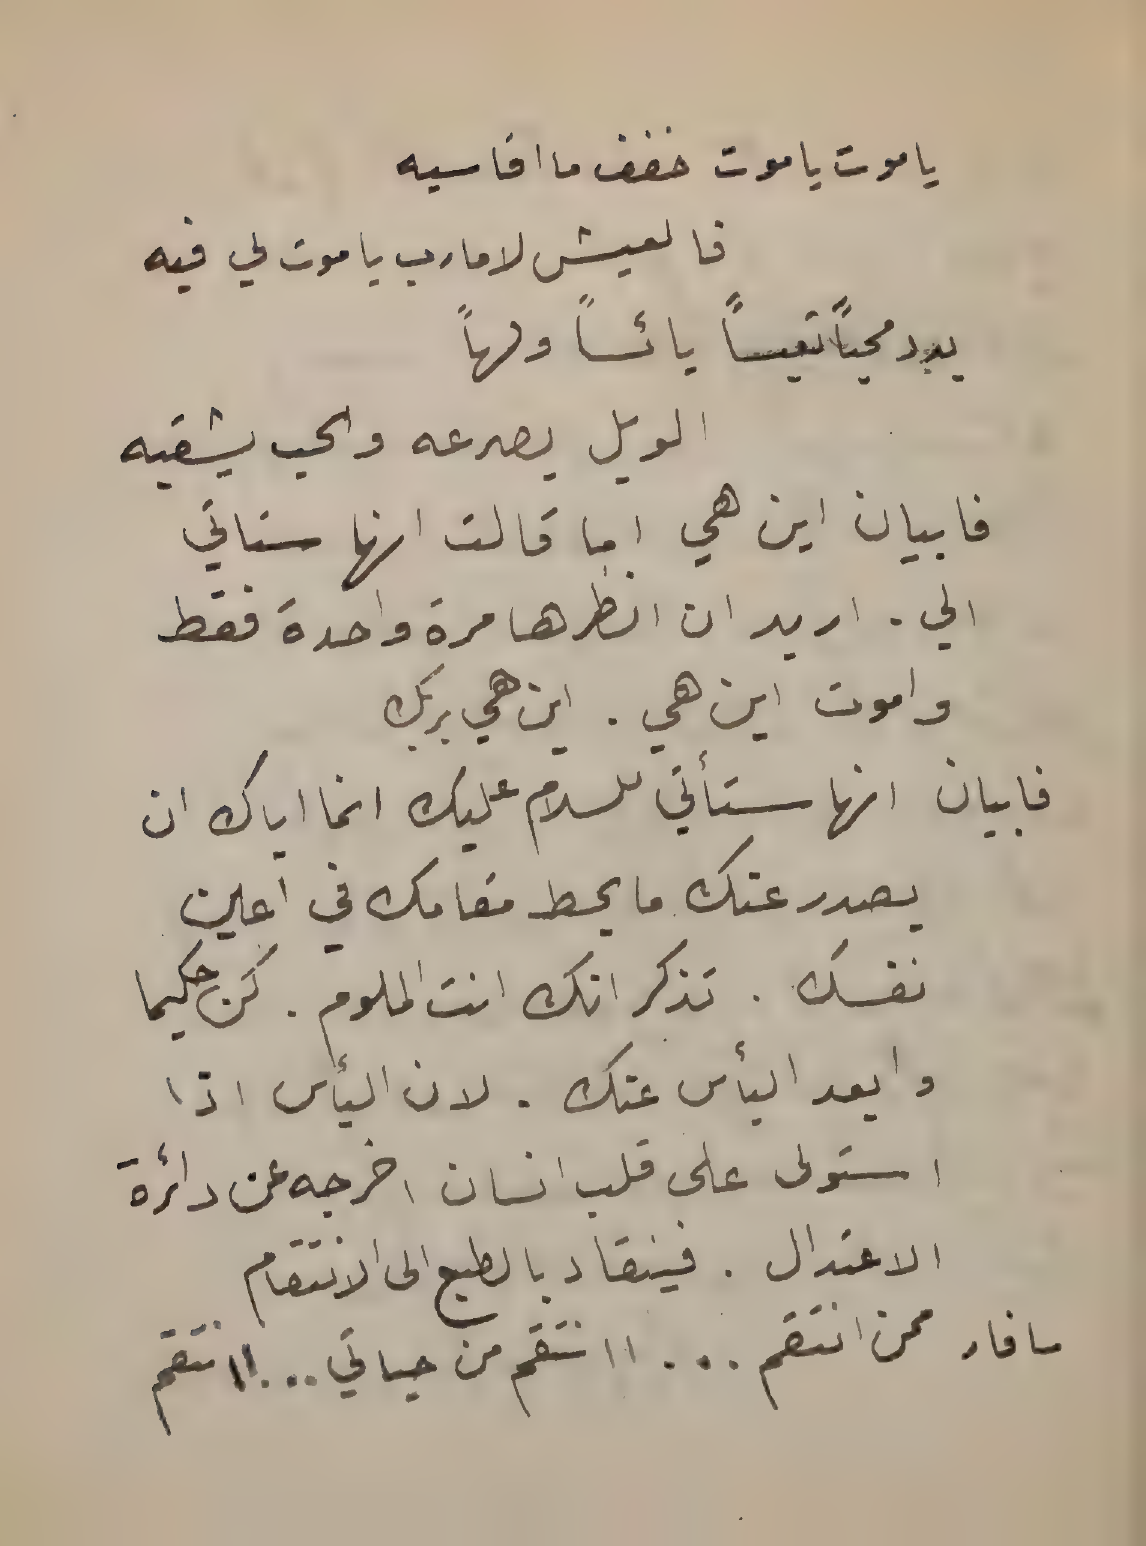 ياموت ياموت خفف ما اقاسيه
فالعيش لا مارب ياموت لي فيه
محباً تعيساً يائساً ولهاً
الويل يصرعه والحب يشقيه
فابيان اين هي اما قالت انها ستاتي
الي . اريد ان انظرها مرة واحدة فقط
واموت اين هي . اين هي بربك
فابيان انها ستأتي للسلام عليك انما اياك ان
يصدر عنك ما يحط مقامك في اعين
نفسك . تذكر انك انت الملوم . كن حكيما
وابعد اليأس عنك . لان اليأس اذا
استولى على قلب انسان اخرجه عن دائرة
الاعتدال . فينقاد بالطبع الى الانتقام
سافار ممن انتقم ... اانتقم من حياتي ... اانتقم